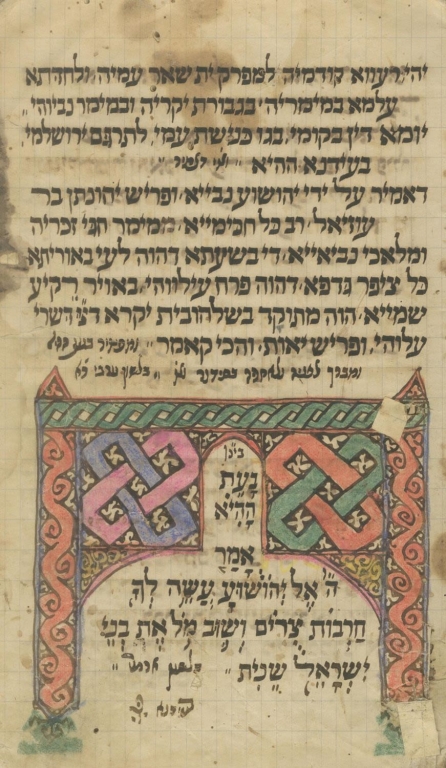 יהי רעווא קודמיה למפרק ית שאר עמיה ולחדתא
עלמא במימריה בגבורת יקריה ובמימר נביוהי
יומא דין בקומי בגו כנישת עמי לתרגם ירושלמי
בעידנא ההיא
דאמיר על ידי יהושוע נבייא ופריש יהונתן בר
עוזיאל רב כל חכימייא ממימר חגי זכריה
ומלאכי נביאייא די בשעתא דהוה לעי באוריתא
כל ציפר גדפא דהוה פרח עילווהי באויר רקיע
שמייא הוה מתוקד בשלהובית יקרא דשרי
עלוהי ופריש יאות והכי קאמר
בָּעֵת
הַהִיא
אָמַר
יְיָ אֶל יְהוֹשֻׁוּעַ עֲשֵׂה לְךָ
חַרְבוֹת צֻרִים וְשׁוּב מֹל אֶת בְּנֵי
יִשְׂרָאֵל שֵׁנִית